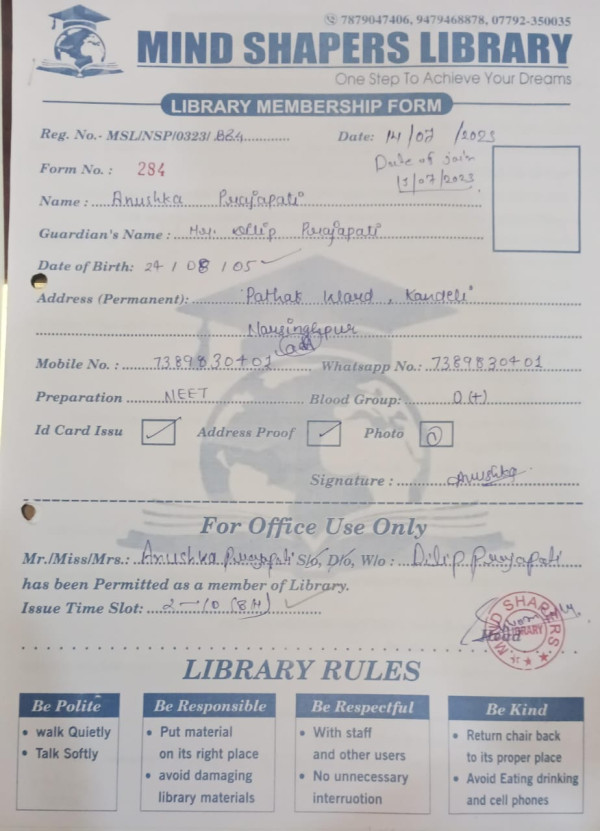 7879047406, 9479468878, 07792-350035
MIND SHAPERS LIBRARY
One Step To Achieve Your Dreams
LIBRARY MEMBERSHIP FORM
Reg. No.- MSL/NSP/0323/ 884 Date: 14/07/2023
Form No. : 284 Date of join
11/07/2023
Name : Anushka Prajapati
Guardian's Name : Mr. Dilip Prajapati
Date of Birth: 24/08/05
Address (Permanent): Pathak Ward, Kandeli
Narsinghpur
Mobile No. : 7389830401 Whatsapp No.: 7389830401
Preparation NEET Blood Group: O (+)
Id Card Issu Address Proof Photo
Signature : Anushka
For Office Use Only
Mr./Miss/Mrs.: Anushka Prajapati S/o, D/o, W/o : Dilip Prajapati
has been Permitted as a member of Library.
Issue Time Slot: 2-10 (8H)
MIND SHAPERS LIBRARY
LIBRARY RULES
Be Polite
walk Quietly
Talk Softly
Be Responsible
Put material
on its right place
avoid damaging
library materials
Be Respectful
With staff
and other users
No unnecessary
interruotion
Be Kind
Return chair back
to its proper place
Avoid Eating drinking
and cell phones